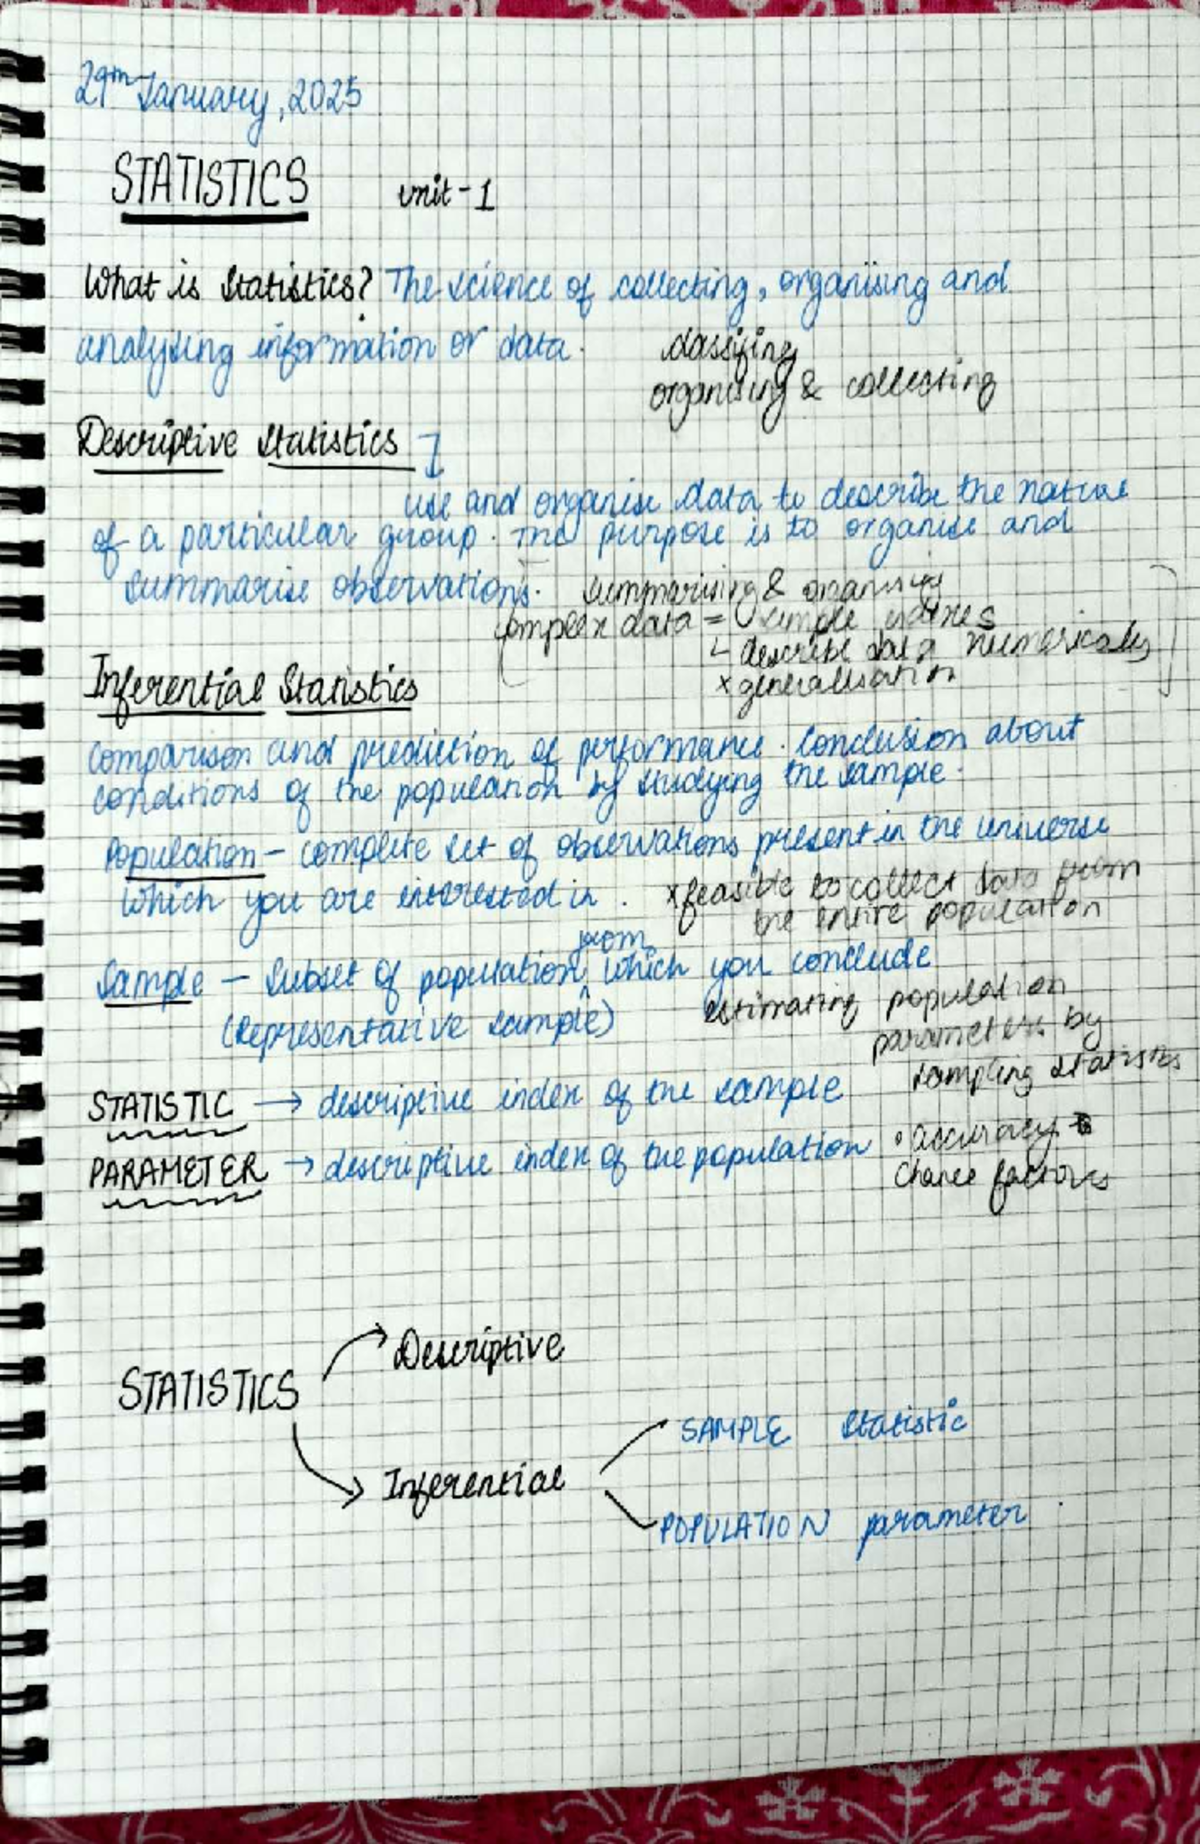 29th January, 2025
STATISTICS unit-1
What is Statistics? The science of collecting, organising and
analysing information or data.
classifing
organising & collecting
Descriptive Statistics
use and organise data to describe the nature
of a particular group. The purpose is to organise and
summarise observations.
summarising & organising
complex data = simple indexes
describe data numerically
x generalisation
Inferential Statistics
comparison and prediction of performance. Conclusion about
conditions of the population by studying the sample.
Population - complete set of observations present in the universe
which you are interested in.
x feasible to collect data from
the entire population
from
Sample - Subset of population, which you conclude
(Representative sample)
estimating population
parameters by
sampling statistics
STATISTIC → descriptive index of the sample
PARAMETER → descriptive index of the population
• accuracy
chance factors
STATISTICS
Descriptive
Inferential
SAMPLE statistic
POPULATION parameter